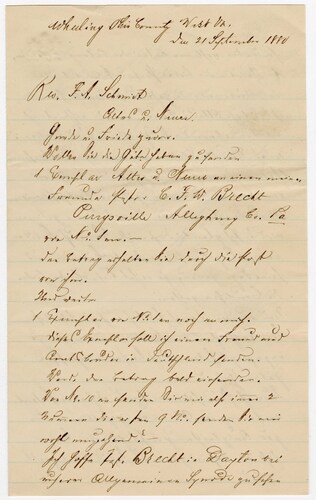 Wheeling Ohio County West Va.
Den 21 September 1880
Rev. F. A. Schmidt
Altes u. Neues.
Gnade u. Friede zuvor.
Wollen Sie die Güte haben zu senden
1 Exemplar Altes u. Neues an einen meiner
Freunde Pastor C. F. W. Brecht
Perrysville Allegheny Co. Pa
von No 1 an.
den Betrag erhalten Sie durch die Post
von ihm.
Und weiter
1 Exemplar von No 1 an noch an mich.
dieses Exemplar soll ich einem Freund und
Amtsbruder in Deutschland senden.
Werde den Betrag bald einsenden.
Von No. 10 an senden Sie mir also immer 2
Nummern die ersten 9 No. senden Sie mir
wohl umgehend?
Ich hoffe Past. Brecht in Dayton bei
unserer Allgemeinen Synode zu sehen